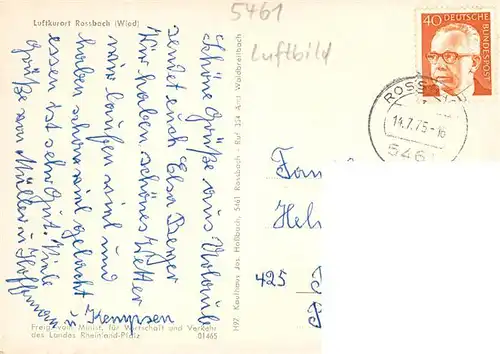 Luftkurort Rossbach (Wied)
5461
Luftbild
Schöne Grüße aus Urlaub
sendet euch Elsa Berger
Wir haben schönes Wetter
wir laufen viel und
haben schon viel gelacht
essen ist sehr gut. Viele
Grüße von Müller u Hoffmann
u Kempsen
Freig. vom Minist. für Wirtschaft und Verkehr
des Landes Rheinland-Pfalz
01465
H97 Kaufhaus Jos. Hallbach, 5461 Rossbach - Ruf 314 Amt Waldbreitbach
40 DEUTSCHE
BUNDESPOST
14.7.75-16
5461
Fam
Hel
425